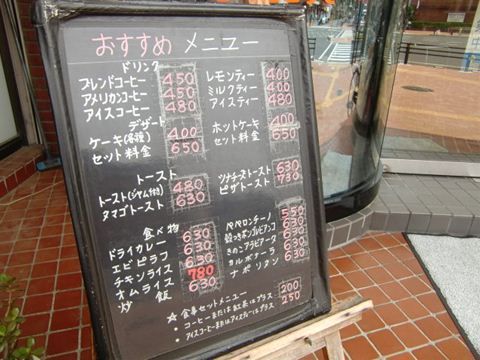 おすすめ メニュー
ドリンク
ブレンドコーヒー 450
アメリカンコーヒー 450
アイスコーヒー 480
レモンティー 400
ミルクティー 400
アイスティー 480
デザート
ケーキ(各種) 400
セット料金 650
ホットケーキ 400
セット料金 650
トースト
トースト(ジャム付) 480
タマゴトースト 630
ツナチーズトースト 630
ピザトースト 730
食べ物
ドライカレー 630
エビピラフ 630
チキンライス 630
オムライス 780
炒飯 630
ペペロンチーノ 550
殻つきボンゴレビアンコ 630
きのこアラビアータ 630
カルボナーラ 630
ナポリタン 630
☆ 食事セットメニュー
・コーヒーまたは紅茶はプラス 200
・アイスコーヒーまたはアイスティープラス 250